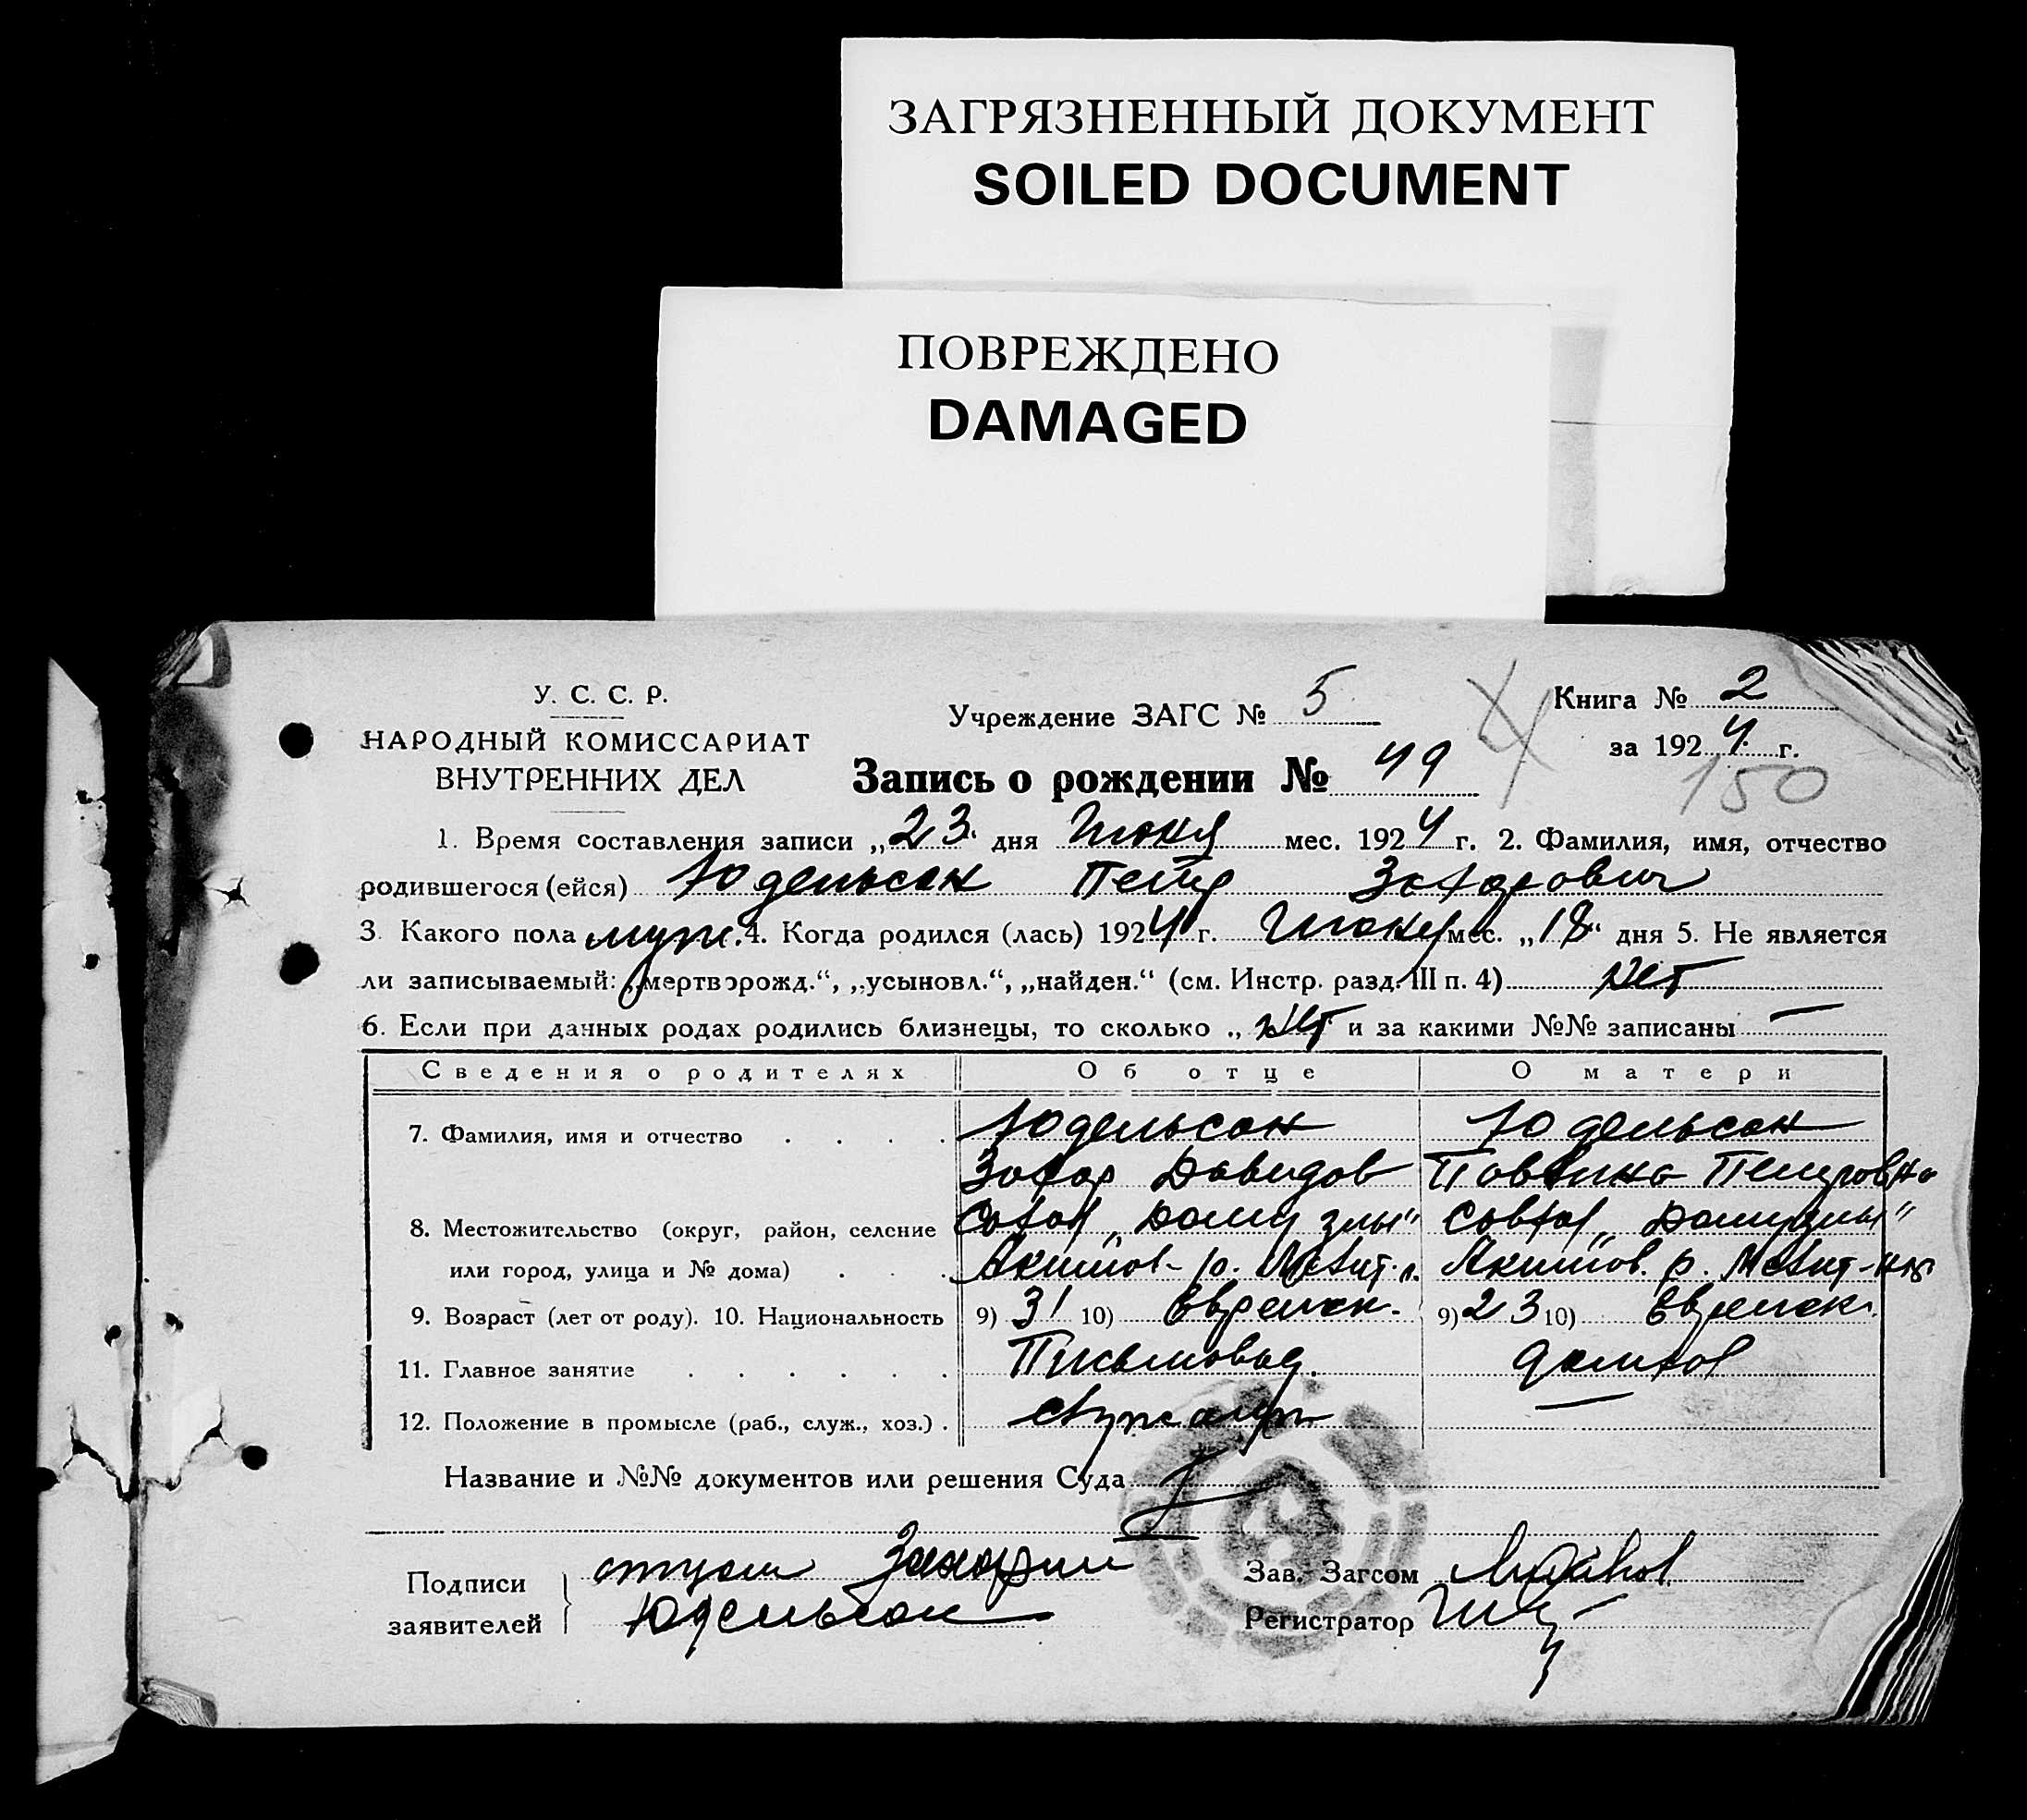 ЗАГРЯЗНЕННЫЙ ДОКУМЕНТ
SOILED DOCUMENT
ПОВРЕЖДЕНО
DAMAGED
У. С. С. Р.
НАРОДНЫЙ КОМИССАРИАТ
ВНУТРЕННИХ ДЕЛ
Учреждение ЗАГС № 5
Книга № 2
за 1924 г.
Запись о рождении № 49
150
1. Время составления записи „23" дня Июня мес. 1924 г. 2. Фамилия, имя, отчество
родившегося (ейся) Юдельсон Петр Захарович
3. Какого пола муж. 4. Когда родился (лась) 1924 г. Июня мес. „18" дня 5. Не является
ли записываемый: „мертворожд.", „усыновл.", „найден." (см. Инстр. разд. III п. 4) нет
6. Если при данных родах родились близнецы, то сколько „ нет и за какими №№ записаны —
Сведения о родителях Об отце О матери
7. Фамилия, имя и отчество Юдельсон Юдельсон
Захар Давидов Петровна
8. Местожительство (округ, район, селение
или город, улица и № дома) Акимов- р. Мелит. Акимов. р. Мелит-
9. Возраст (лет от роду). 10. Национальность 9) 31 10) Еврейск. 9) 23 10) Еврейск.
11. Главное занятие Письмовод. домхоз
12. Положение в промысле (раб., служ., хоз.) служащ —
Название и №№ документов или решения Суда
Подписи заявителей отцом Захарий
Юдельсон
Зав. Загсом
Регистратор